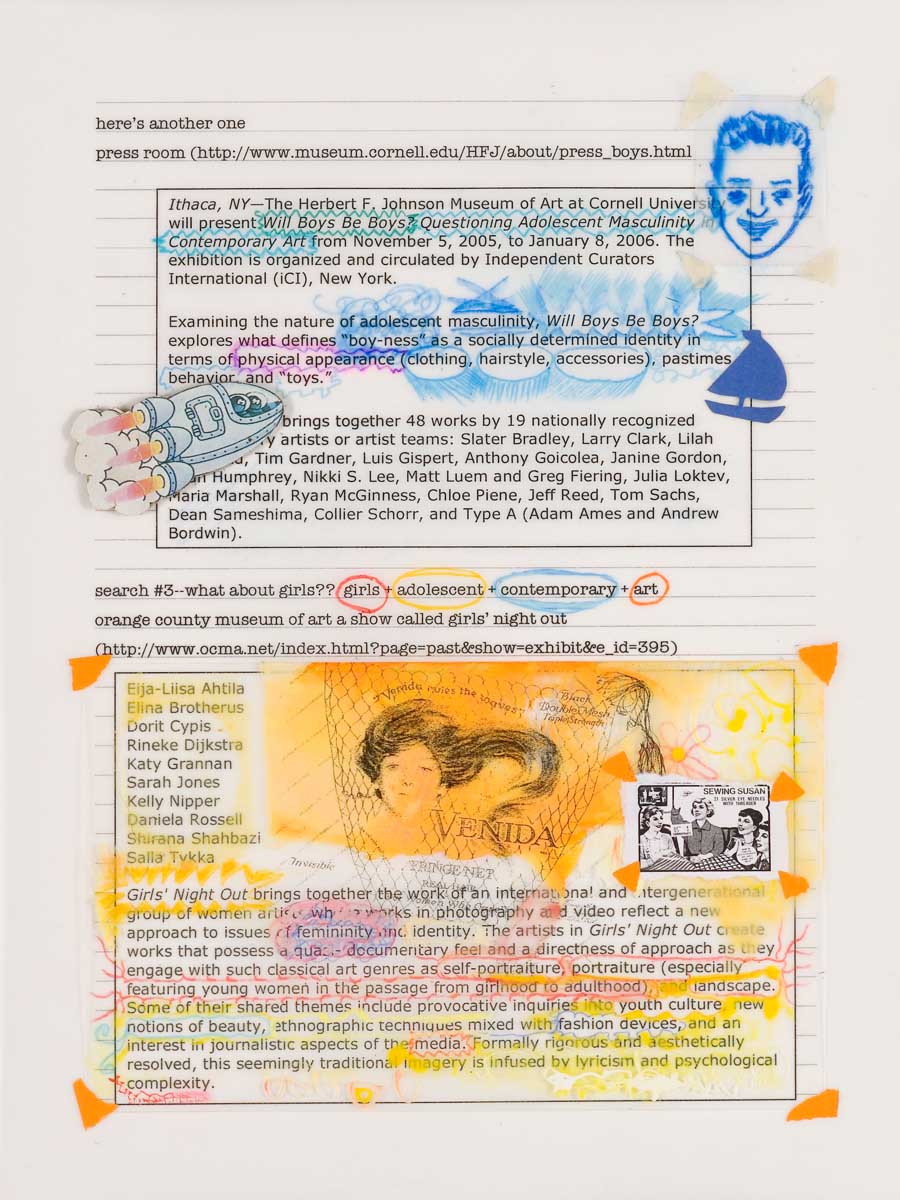 here's another one
press room (http://www.museum.cornell.edu/HFJ/about/press_boys.html
Ithaca, NY—The Herbert F. Johnson Museum of Art at Cornell University
will present Will Boys Be Boys? Questioning Adolescent Masculinity in
Contemporary Art from November 5, 2005, to January 8, 2006. The
exhibition is organized and circulated by Independent Curators
International (iCI), New York.
Examining the nature of adolescent masculinity, Will Boys Be Boys?
explores what defines “boy-ness” as a socially determined identity in
terms of physical appearance (clothing, hairstyle, accessories), pastimes
behavior, and “toys.”
brings together 48 works by 19 nationally recognized
artists or artist teams: Slater Bradley, Larry Clark, Lilah
Tim Gardner, Luis Gispert, Anthony Goicolea, Janine Gordon,
Humphrey, Nikki S. Lee, Matt Luem and Greg Fiering, Julia Loktev,
Maria Marshall, Ryan McGinness, Chloe Piene, Jeff Reed, Tom Sachs,
Dean Sameshima, Collier Schorr, and Type A (Adam Ames and Andrew
Bordwin).
search #3--what about girls?? girls + adolescent + contemporary + art
orange county museum of art a show called girls' night out
(http://www.ocma.net/index.html?page=past&show=exhibit&e_id=395)
Eija-Liisa Ahtila
Elina Brotherus
Dorit Cypis
Rineke Dijkstra
Katy Grannan
Sarah Jones
Kelly Nipper
Daniela Rossell
Shirana Shahbazi
Salla Tykka
Venida rules the waves
Black
Double Mesh
Triple Strength
VENIDA
Invisible
FRINGE NET
REAL HAIR
SEWING SUSAN
21 SILVER EYE NEEDLES
WITH THREADER
Girls' Night Out brings together the work of an international and intergenerational
group of women artists whose works in photography and video reflect a new
approach to issues of femininity and identity. The artists in Girls' Night Out create
works that possess a quasi- documentary feel and a directness of approach as they
engage with such classical art genres as self-portraiture, portraiture (especially
featuring young women in the passage from girlhood to adulthood), and landscape.
Some of their shared themes include provocative inquiries into youth culture, new
notions of beauty, ethnographic techniques mixed with fashion devices, and an
interest in journalistic aspects of the media. Formally rigorous and aesthetically
resolved, this seemingly traditional imagery is infused by lyricism and psychological
complexity.